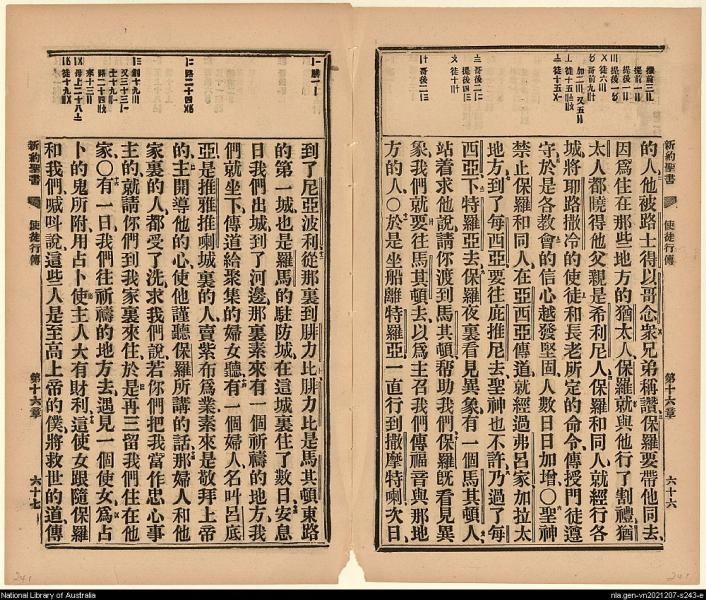 新約聖書
使徒行傳
第十六章
六十六
的人他被路士得以哥念衆兄弟稱讚保羅要帶他同去
因爲住在那些地方的猶太人保羅就與他行了割禮猶
太人都曉得他父親是希利尼人保羅和同人就經行各
城將耶路撒冷的使徒和長老所定的命令傳授門徒遵
守於是各教會的信心越發堅固人數日日加增〇聖神
禁止保羅和同人在亞西亞傳道就經過弗呂家加拉太
地方到了每西亞要往庇推尼去聖神也不許乃過了每
西亞下特羅亞去保羅夜裏看見異象有一個馬其頓人
站着求他說請你渡到馬其頓帮助我們保羅旣看見異
象我們就要往馬其頓去以爲主召我們傳福音與那地
方的人〇於是坐船離特羅亞一直行到撒摩特喇次日
到了尼亞波利從那裏到腓力比腓力比是馬其頓東路
的第一城也是羅馬的駐防城在這城裏住了數日安息
日我們出城到了河邊那裏素來有一個祈禱的地方我
們就坐下傳道給聚集的婦女聽有一個婦人名叫呂底
亞是推雅推喇城裏的人賣紫布爲業素來是敬拜上帝
的主開導他的心使他謹聽保羅所講的話那婦人和他
家裏的人都受了洗求我們說若你們把我當作忠心事
主的就請你們到我家裏來住於是再三留我們住在他
家〇有一日我們往祈禱的地方去遇見一個使女爲占
卜的鬼所附用占卜使主人大有財利這使女跟隨保羅
和我們喊呌說這些人是至高上帝的僕將救世的道傳
新約聖書
使徒行傳
第十六章
六十七
National Library of Australia
nla.gen-vn2021207-s243-e